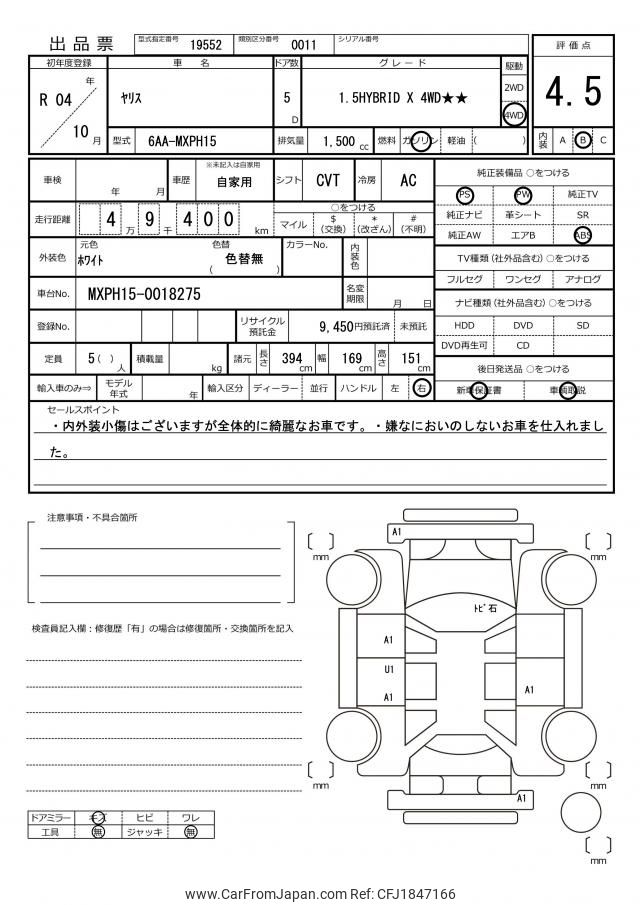 出品票
型式指定番号 19552 類別区分番号 0011 シリアル番号
初年度登録 車名 ドア数 グレード 駆動 評価点
R 04 年 10 月
ﾔﾘｽ 5 D 1.5HYBRID X 4WD★★ 2WD 4WD
4.5
型式 6AA-MXPH15 排気量 1,500 cc 燃料 ガソリン 軽油 ( )
内装 A B C
車検 年 月 車歴 ※未記入は自家用 自家用 シフト CVT 冷房 AC
走行距離 4 万 9 千 4 0 0 km
○をつける
マイル $(交換) *(改ざん) #(不明)
外装色 元色 ﾎﾜｲﾄ 色替 ( 色替無 ) カラーNo. 内装色
車台No. MXPH15-0018275 名変期限 月 日
登録No. リサイクル預託金 9,450円預託済 未預託
定員 5 ( ) 人 積載量 kg 諸元 長さ 394 cm 幅 169 cm 高さ 151 cm
輸入車のみ⇒ モデル年式 年 輸入区分 ディーラー 並行 ハンドル 左 右
純正装備品 ○をつける
PS PW 純正TV
純正ナビ 革シート SR
純正AW エアB ABS
TV種類 (社外品含む) ○をつける
フルセグ ワンセグ アナログ
ナビ種類 (社外品含む) ○をつける
HDD DVD SD
DVD再生可 CD
後日発送品 ○をつける
新車保証書 車輌取説
セールスポイント
・内外装小傷はございますが全体的に綺麗なお車です。・嫌なにおいのしないお車を仕入れまし
た。
注意事項・不具合箇所
検査員記入欄：修復歴「有」の場合は修復箇所・交換箇所を記入
ドアミラー キズ ヒビ ワレ
工具 無 ジャッキ 無
A1
mm
mm
ﾄﾋﾞ石
A1
U1
A1
A1
mm
mm
A1
mm
www.CarFromJapan.com Ref: CFJ1847166